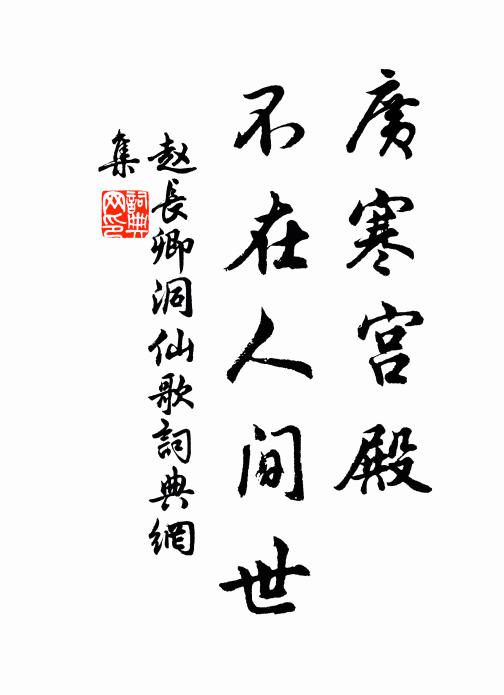 廣寒宮殿
不在人间世
赵長卿洞仙歌詞典網
集
詞典
网印